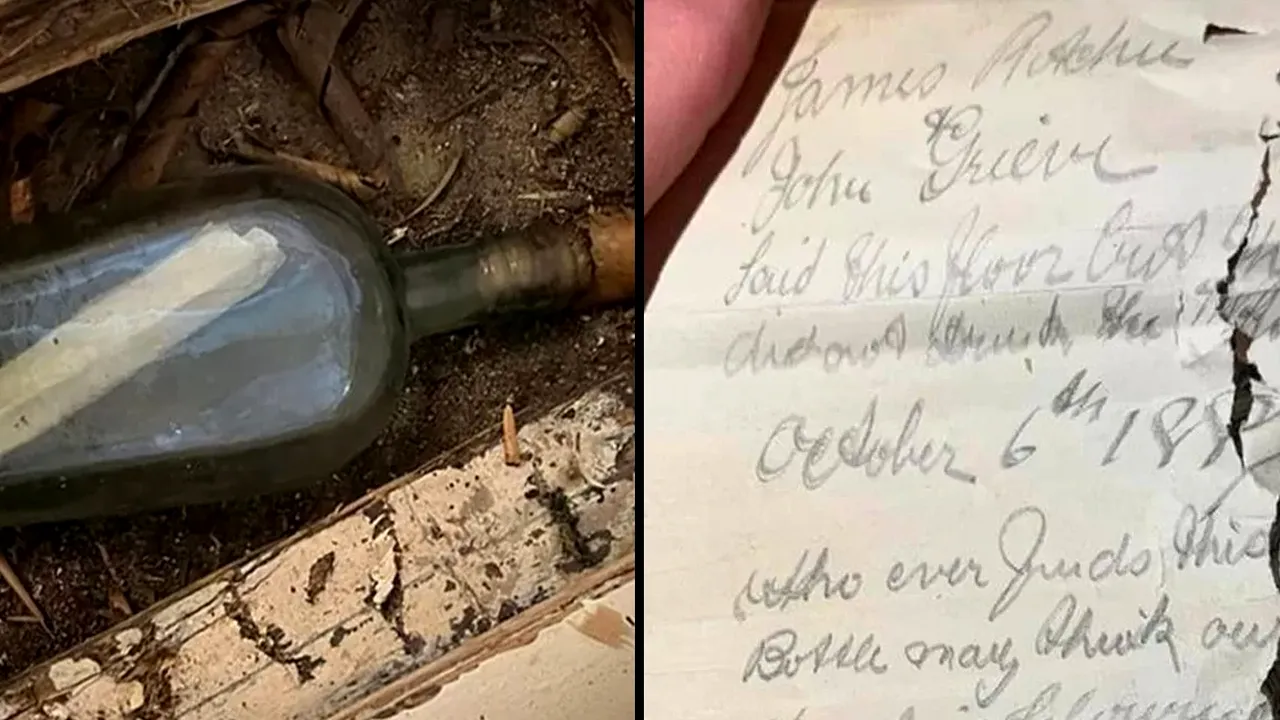 James Ritchie
&
John Grieve
laid this floor but
did not drink the
October 6th 188
Who ever finds this
Bottle may think our
dust is blowing